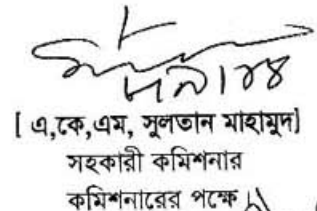 [ এ,কে,এম, সুলতান মাহামুদ]
সহকারী কমিশনার
কমিশনারের পক্ষে